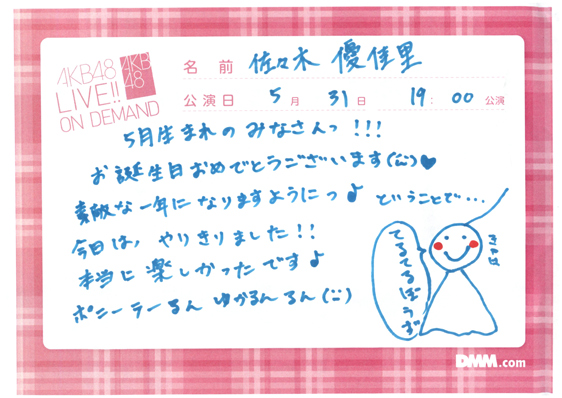 AKB48
LIVE!!
ON DEMAND
AKB
48
名前 佐々木 優佳里
公演日 5月 31日 19:00 公演
5月生まれの みなさんっ!!!
お誕生日おめでとうございます(¨)♥
素敵な一年になりますようにっ♪ ということで...
今日は, やりきりました!!
本当に楽しかったです♪
ポニーラーるん ゆかるんるん(¨)
てるてるぼうず
DMM.com